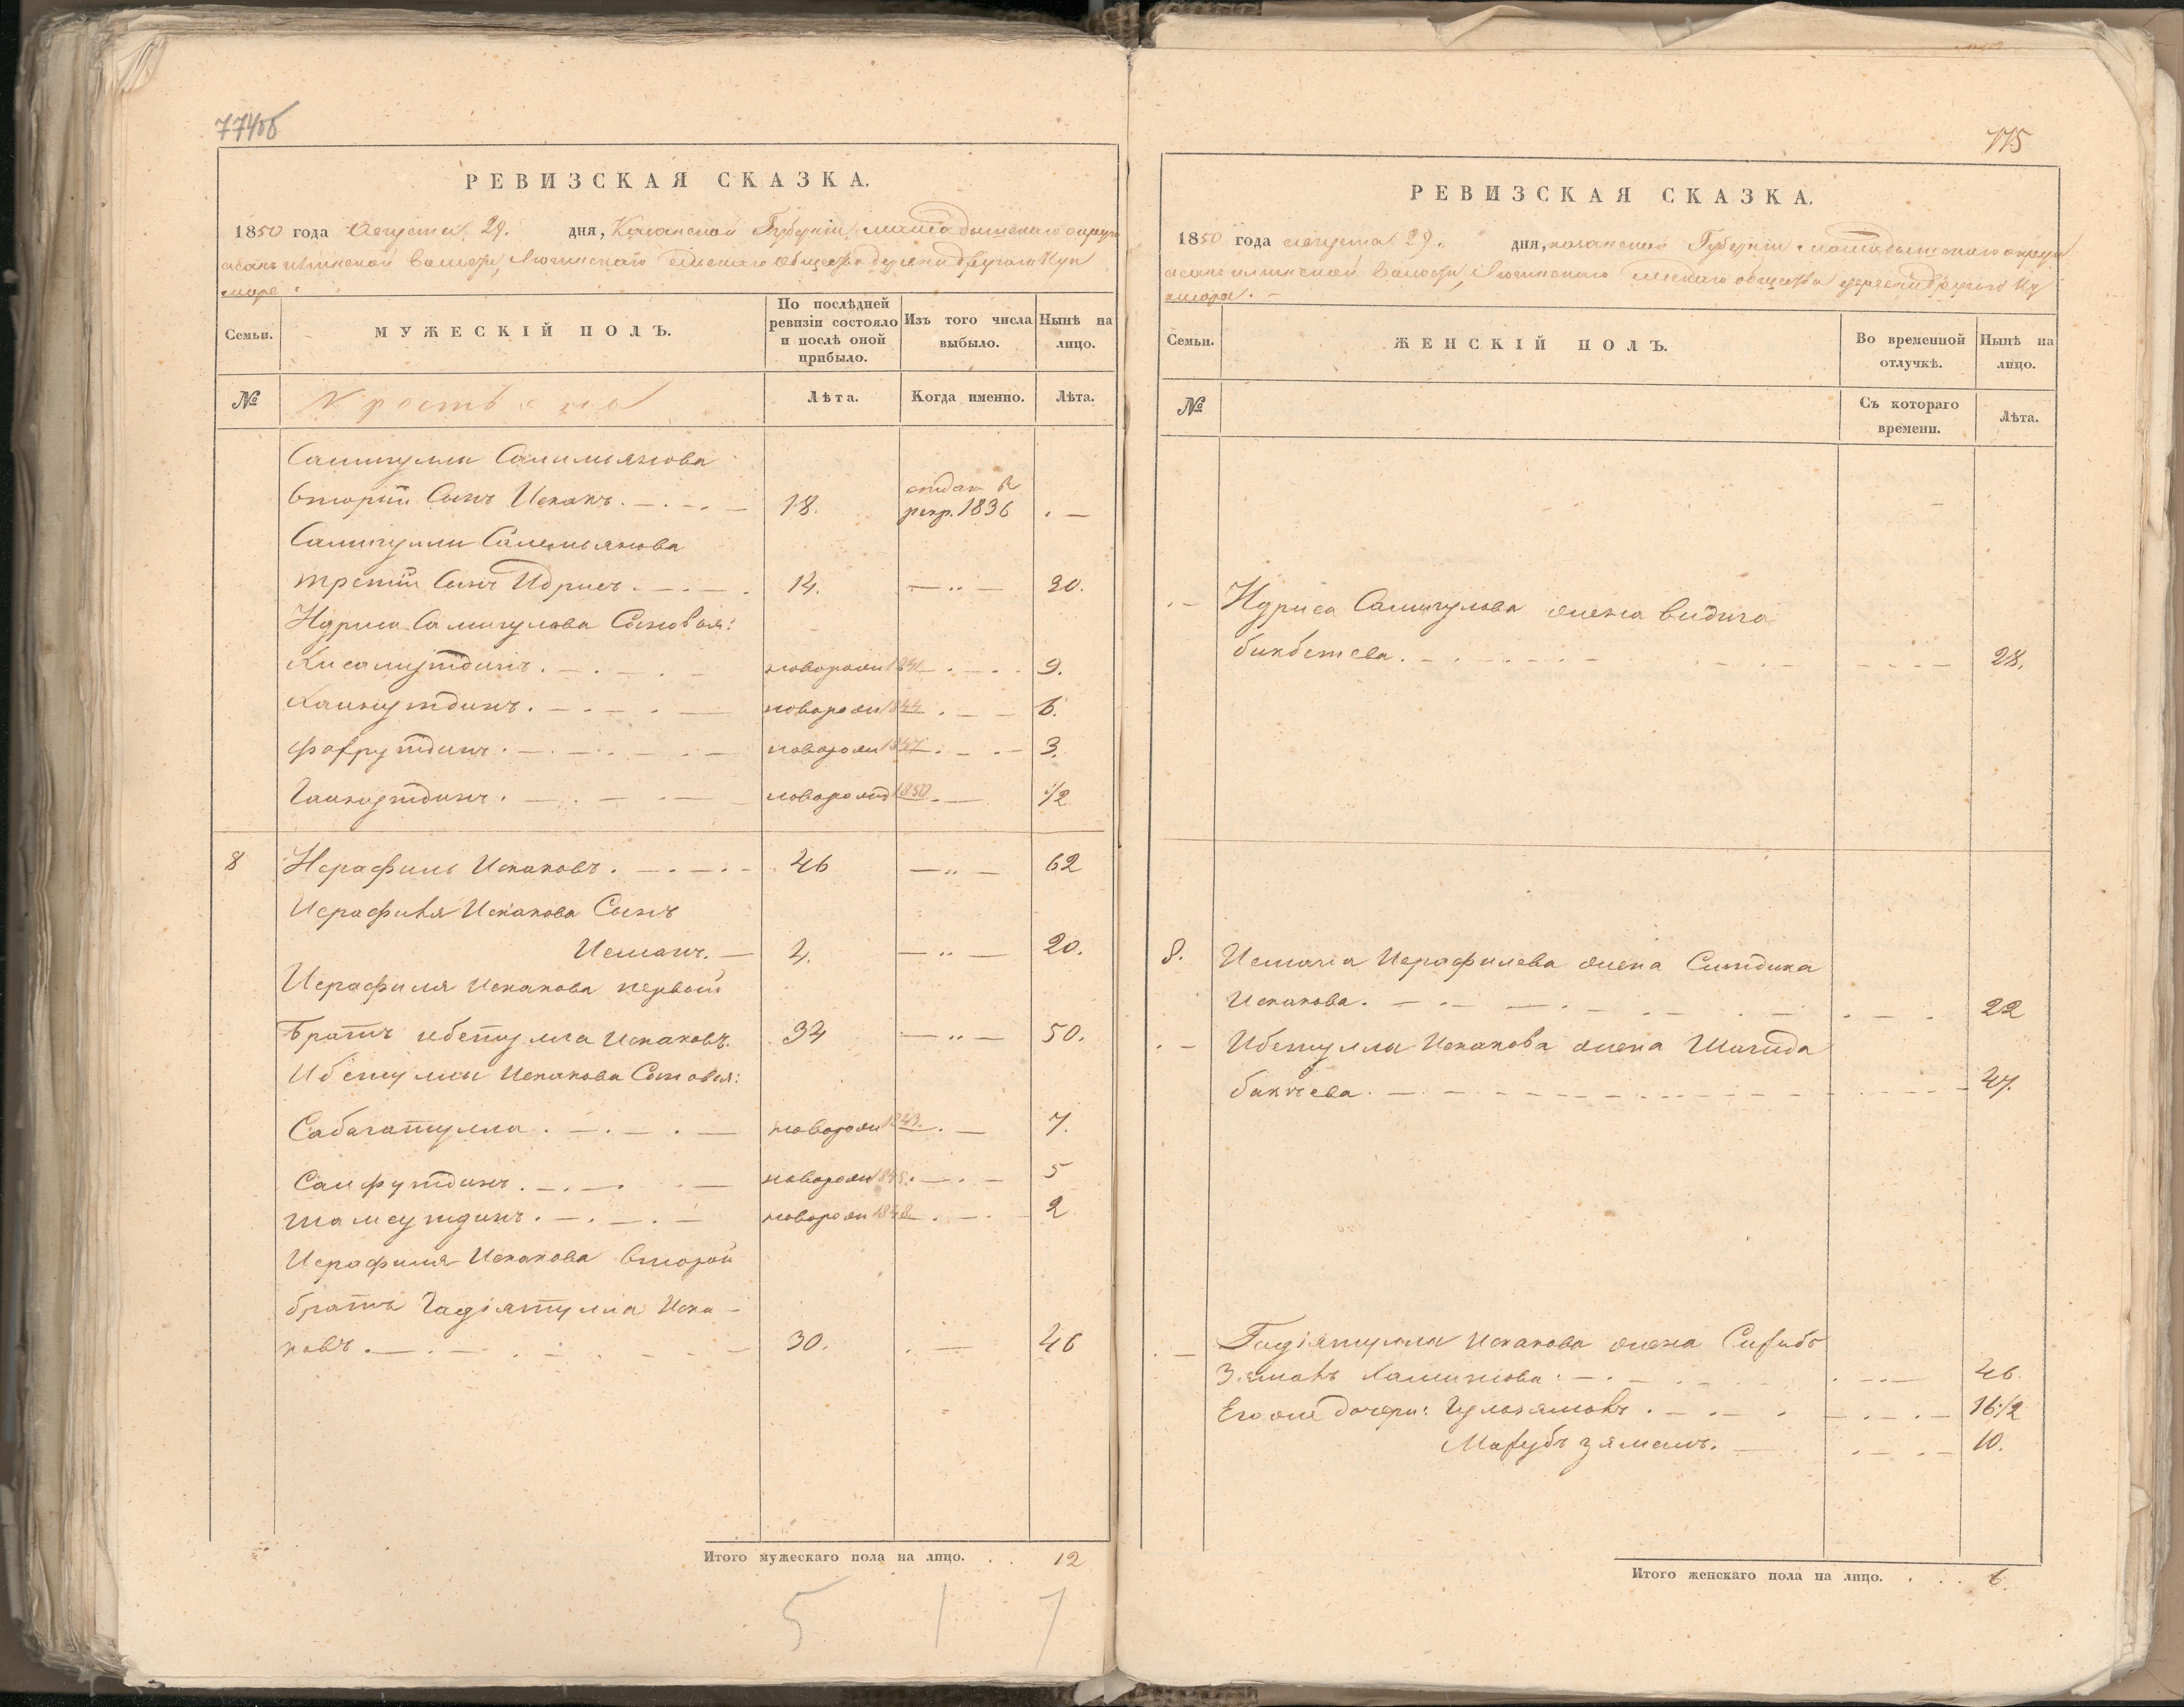 774об
РЕВИЗСКАЯ СКАЗКА.
1850 года Августа 29. дня, Казанской Губерніи, мамадышскаго округа
асанъ илгинской Волости, Лючинскаго сельскаго общества деревни другаго Кук
море
Семьи.
МУЖЕСКІЙ ПОЛЪ.
По послѣдней ревизіи состояло и послѣ оной прибыло.
Изъ того числа выбыло.
Нынѣ на лицо.
№
Крестьяне
Лѣта.
Когда именно.
Лѣта.
Самигуллы Салимьянова
вторый Сынъ Исхакъ. 18. отдан в рекр. 1836
Самигуллы Салемьянова
третій Сынъ Идрисъ. 14. 30.
Идриса Самигулова Сыновья:
Хисамутдинъ. новорожд 1841 9.
Каинутдинъ. новорожд 1844 6.
Фахрутдинъ. новорожд 1847 3.
Гайнутдинъ. новорожд 1850 1/2
8 Исрафиль Исхаковъ. 46 62
Исрафиля Исхакова Сынъ
Исманъ. 4. 20.
Исрафиля Исхакова первой
Братъ ибетулла Исхаковъ. 34 50.
Ибетуллы Исхакова Сыновья:
Сабагатулла. новорожд 1843. 7.
Сайфутдинъ. новорожд 1845. 5
Шамсутдинъ. новорожд 1848 2
Исрафиля Исхакова второй
братъ Гадіятулла Исха-
ковъ. 30. 46
Итого мужескаго пола на лицо. 12
5 1 7
775
РЕВИЗСКАЯ СКАЗКА.
1850 года августа 29. дня, казанской Губерніи мамадышскаго округа
асанъ илгинской Волости, Лючинскаго сельскаго общества деревни другаго Ку
кмора.
Семьи.
ЖЕНСКІЙ ПОЛЪ.
Во временной отлучкѣ.
Нынѣ на лицо.
№
Съ котораго времени.
Лѣта.
Идриса Самигулова жена видига
бикбетева. 28.
8. Исмана Исрафилева жена Ситдика
Исхакова. 22
Ибетуллы Исхакова жена Шагида
бакчева. 47.
Гадіятуллы Исхакова жена Сахибъ
Зямалъ Хамитова. 46.
Его же дочери: Гульзямалъ. 16 1/2
Махубъ зямалъ. 10.
Итого женскаго пола на лицо. 6.